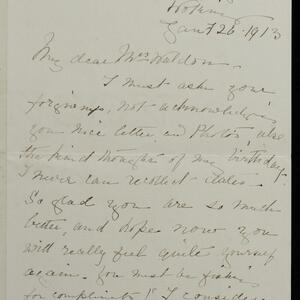 Woking
Jan 26 1913
My dear Mrs Waldon.
I must ask your
forgiveness, not acknowledging
your nice letter and Photos also
the kind thought of my birthday.
I never can recollect dates.
So glad you are so much
better, and hope now you
will really feel quite yourself
again. You must be fishing
for compliments! I consider